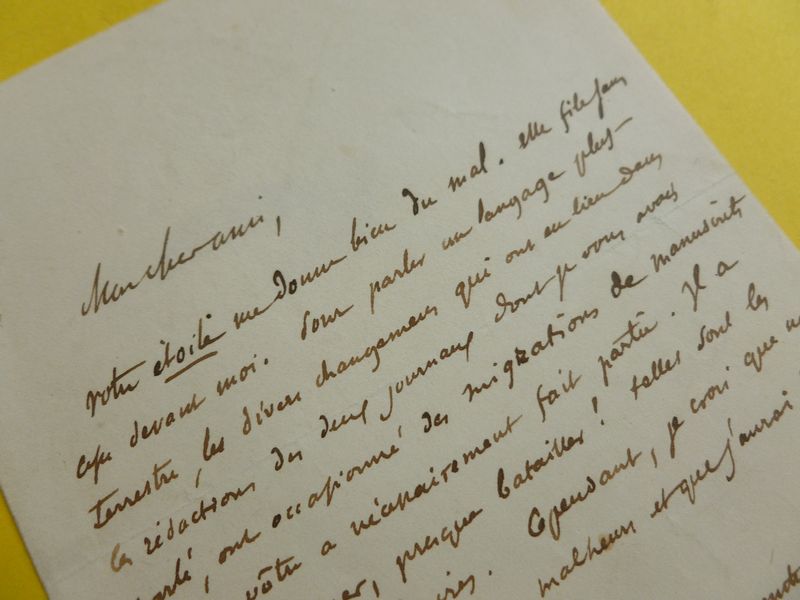 Mon cher ami,
votre étoile me donne bien du mal. elle file sans
cesse devant moi. Pour parler un langage plus
terrestre, les divers changemens qui ont eu lieu dans
les rédactions des deux journaux dont je vous avais
parlé, ont occasionné des migrations de manuscrits
vôtre a nécessairement fait partie. Il a
presque batailler! telles sont les
Cependant, je crois que
malheurs et que j'aurai